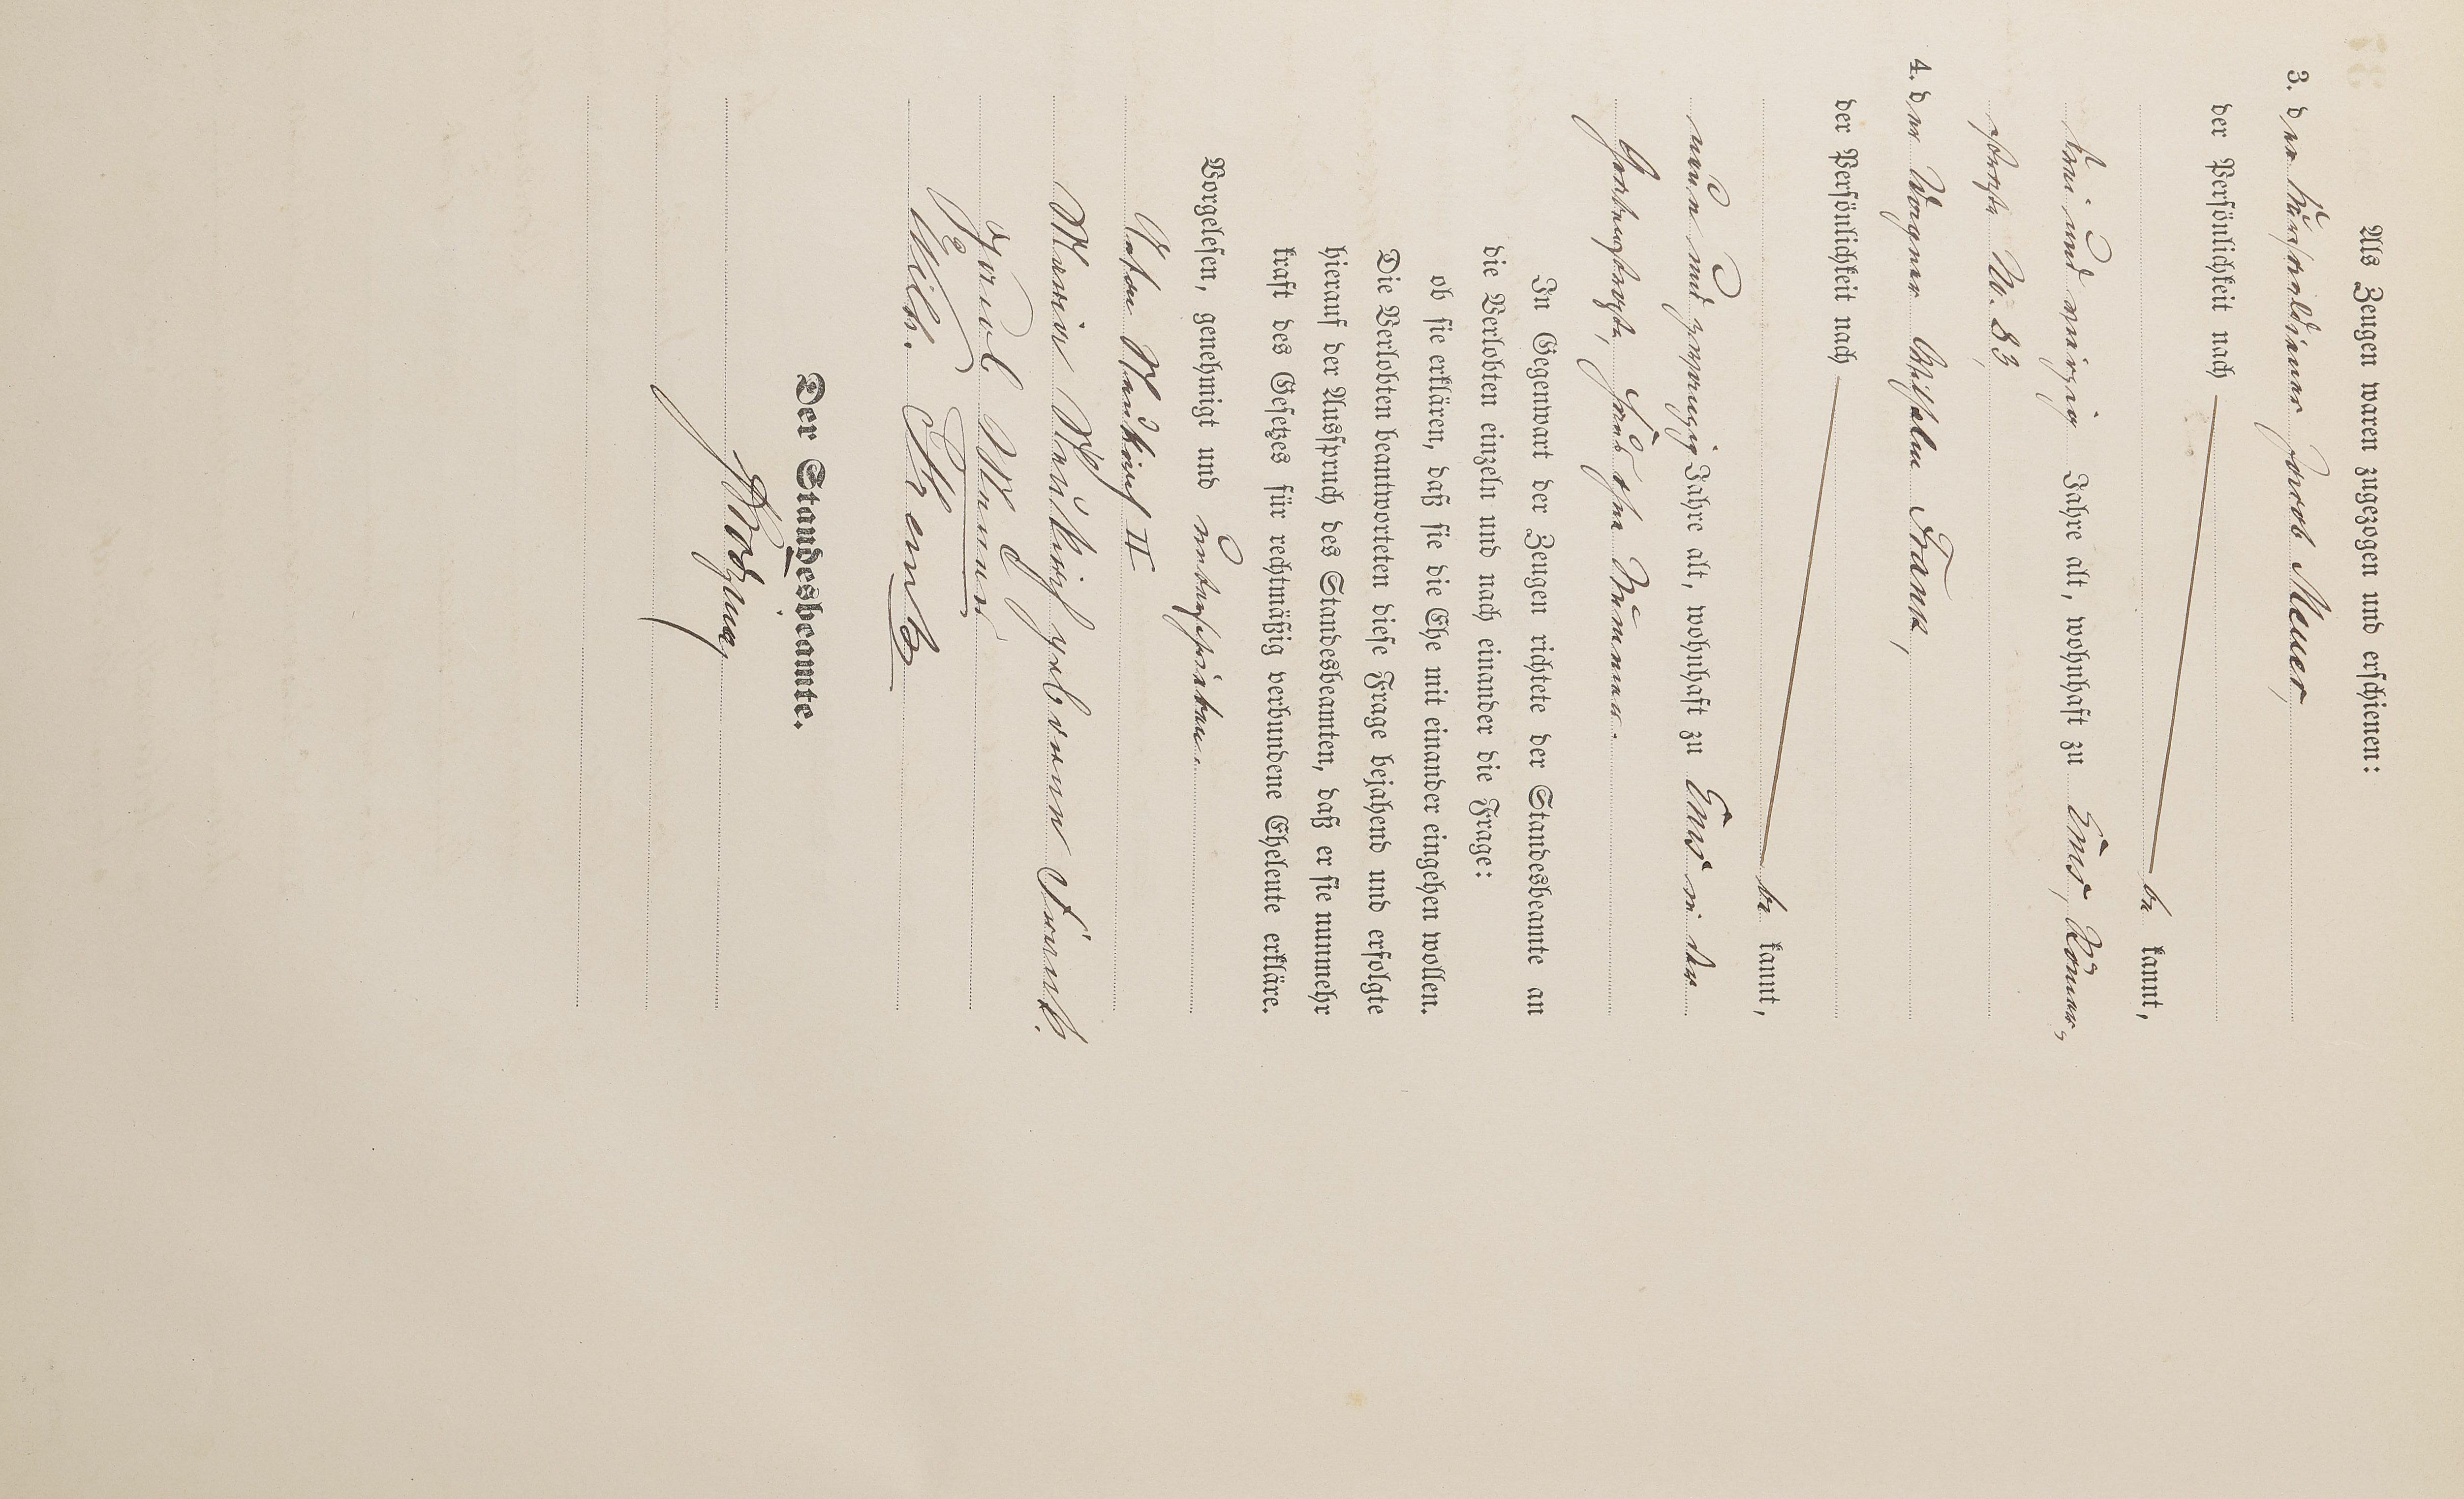 Als Zeugen waren zugezogen und erschienen:
3. der Jacob Meuer,
der Persönlichkeit nach
be kannt,
drei und vierzig Jahre alt, wohnhaft zu Ems, Römer,
straße No. 83,
4. der Wagner Wilhelm Frank,
der Persönlichkeit nach
be kannt,
neun und zwanzig Jahre alt, wohnhaft zu Ems in der
Grabenstraße, ohne Nummer.
In Gegenwart der Zeugen richtete der Standesbeamte an
die Verlobten einzeln und nach einander die Frage:
ob sie erklären, daß sie die Ehe mit einander eingehen wollen.
Die Verlobten beantworteten diese Frage bejahend und erfolgte
hierauf der Ausspruch des Standesbeamten, daß er sie nunmehr
kraft des Gesetzes für rechtmäßig verbundene Eheleute erkläre.
Vorgelesen, genehmigt und unterschrieben.
Anton II
Maria geborene
Jacob Meuer
Wilh. Frank
Der Standesbeamte.